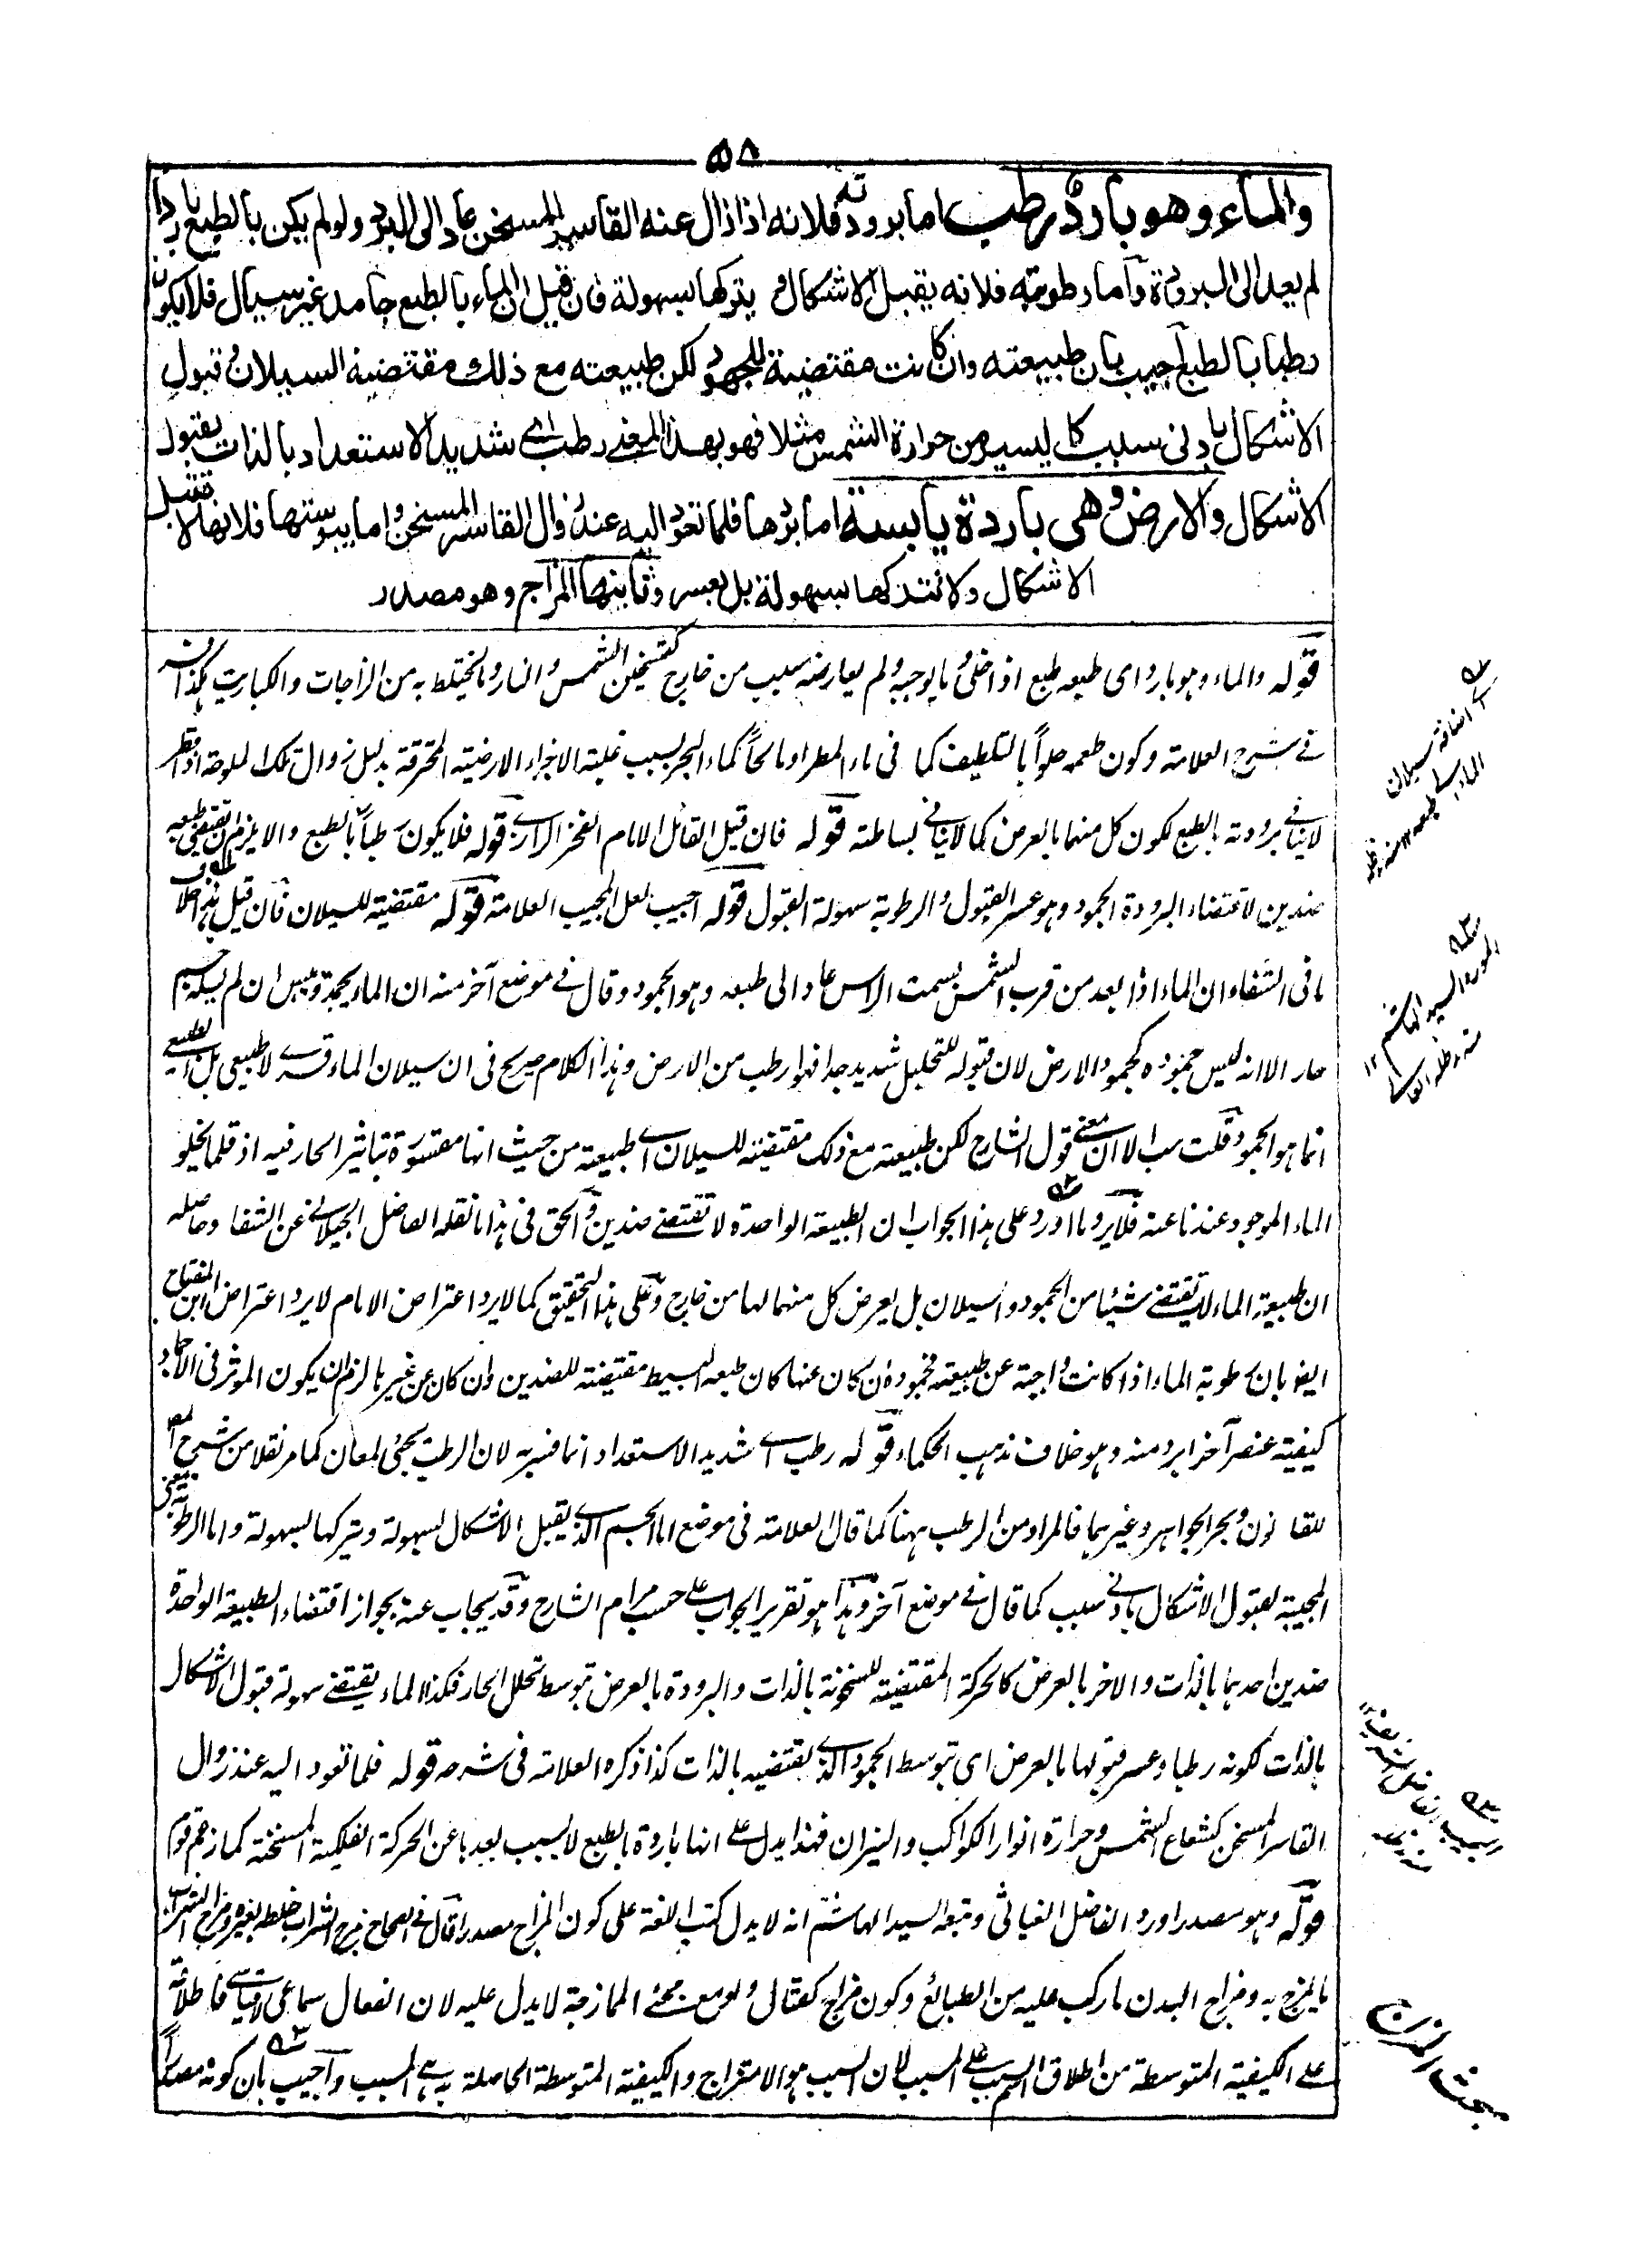 ٥٨
والماء وهو بارد رطب اما برودته فلانه اذا زال عنه القاسر المسخن عاد الى البرد ولو لم يكن بالطبع باردا
لم يعد الى البرودة وآما رطوبته فلانه يقبل الاشكال و يتركها بسهولة فان قيل ان الماء بالطبع جامد غير سيال فلا يكون
رطبا بالطبع آجيب بان طبيعته وان كانت مقتضية للجمود لكن طبيعته مع ذلك مقتضية السيلان و قبول
الاشكال بادنى سبب كا ليسير من حرارة الشمس مثلا فهو بهذا المعنے رطب اے شديد الاستعداد بالذات لقبول
الاشكال والارض و هى باردة يابسة اما بردها فلما تعود اليه عند زوال القاسر المسخن و اما يبوستها فلانها لا تقبل
الاشكال ولا تتركها بسهولة بل بعسر و ثانيتها المزاج وهو مصدر
قوله والماء وهو بارد اى طبعه طبع اذ اخلى و ما يوجبه و لم يعارضه سبب من خارج كتسخين الشمس و النار و ما يختلط به من الزاجات والكباريت هكذا
فے شرح العلامة وكون طعمه حلواً بالتلطيف كما فى ماء المطر او مالحاً كماء البحر بسبب غلبة الاجزاء الارضية المحترقة بدليل زوال تلك الملوحة اذا قطر
لاينافے برودته بالطبع لكون كل منهما بالعرض كما لاينافے بساطته قوله فان قيل القائل الامام الفخر الرازے قوله فلا يكون رطباً بالطبع والا يلزم ان يقتضى طبعه
ضدين لاقتضاء البرودة الجمود وهو عسر القبول و الرطوبة سهولة القبول قوله اجيب لعل المجيب العلامة قوله مقتضية للسيلان فان قيل هذا خلاف
ما فى الشفاء ان الماء اذا بعد من قرب الشمس بسمت الراس عاد الى طبعه وهو الجمود وقال فے موضع آخر منه ان الماء يجمد و يبس ان لم يسله جسم
حار الا انه ليس جموده كجمود الارض لان قبوله للتحليل شديد جدا فهو ارطب من الارض وهذا الكلام صريح فى ان سيلان الماء قسرے لا طبيعى بل الطبيعے
انما هو الجمود قلت الا ان معنے قول الشارح لكن طبيعته مع ذلك مقتضية للسيلان اے طبيعته من حيث انها مقسورة بتاثير الحار فيه اذ قلما يخلو
الماء الموجود عندنا عنه فلا يرد ما اورد على هذا الجواب ان الطبيعة الواحدة لا تقتضے ضدين و الحق فى هذا ما نقله الفاضل الجيلانے عن الشفا وحاصله
ان طبيعة الماء لا تقتضے شيئا من الجمود والسيلان بل يعرض كل منهما لها من خارج و على هذا التحقيق كما لا يرد اعتراض الامام لا يرد اعتراض ابن المفتاح
ايضا بان رطوبة الماء اذا كانت واجبة عن طبيعته فجموده ان كان عنها كان طبعه البسيط مقتضية للضدين وان كان عن غيرها لزم ان يكون الموثر فى الاجماد
كيفية عنصر آخر ابرد منه وهو خلاف مذهب الحكماء قوله رطب اے شديد الاستعداد انما فسر به لان الرطب يجئ لمعان كما مر نقلا من شرح
للقانون و بحر الجواهر وغيرهما فالمراد من الرطب ههنا كما قال العلامة فى موضع اما الجسم الذے يقبل الاشكال بسهولة ويتركها بسهولة واما الرطوبة بمعنى
المجيبة لقبول الاشكال بادنے سبب كما قال فے موضع آخر و هذا هو تقرير الجواب علے حسب مرام الشارح و قد يجاب عنه بجواز اقتضاء الطبيعة الواحدة
ضدين احدهما بالذات والاخر بالعرض كالحركة المقتضية للسخونة بالذات والبرودة بالعرض بتوسط تحلل الحار فكذا الماء يقتضے سهولة قبول الاشكال
بالذات لكونه رطبا وعسر قبولها بالعرض اى بتوسط الجمود الذے تقتضيه بالذات كذا ذكره العلامة فى شرحه قوله فلما تعود اليه عند زوال
القاسر المسخن كشعاع الشمس وحرارة انوار الكواكب والنيران فهذا يدل علے انها باردة بالطبع لا بسبب بعدها عن الحركة الفلكية المسخنة كما زعم قوم
قوله وهو مصدر اورد الفاضل الغياثى وتبعه السيد الهاشم انه لا يدل كتب اللغة على كون المزاج مصدرا قال فے الصحاح مزج الشراب خلطه بغيره و مزاج الشراب
ما يمزج به و مزاج البدن ما ركب عليه من الطبائع وكون مزاج كقتال و لو مع مجئے الممازجة لا يدل عليه لان الفعال سماعى لا قياسے فاطلاقه
علے الكيفية المتوسطة من اطلاق السبب علے المسبب لان السبب هو الامتزاج والكيفية المتوسطة الحاصلة به هے المسبب و اجيب بان كونه مصدراً
اضافة سيلان